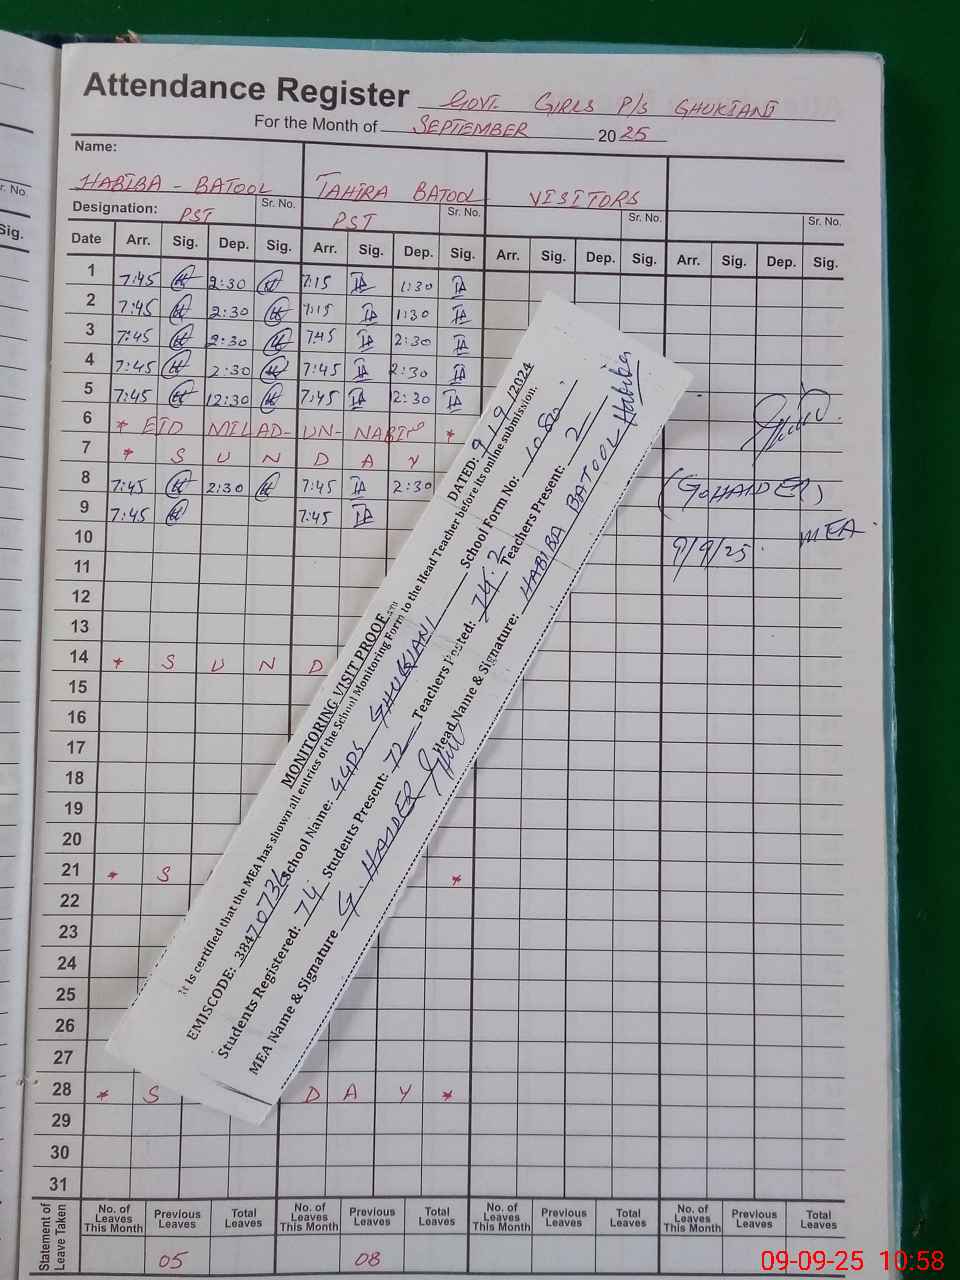 Attendance Register GOVT. GIRLS P/S GHUKIANI
For the Month of SEPTEMBER 2025
Name:
HABIBA - BATOOL TAHIRA BATOOL VISITORS
Sr. No. Sr. No. Sr. No. Sr. No.
Designation: PST PST
Date Arr. Sig. Dep. Sig. Arr. Sig. Dep. Sig. Arr. Sig. Dep. Sig. Arr. Sig. Dep. Sig.
1 7:45 2:30 7:15 1:30
2 7:45 2:30 7:15 1:30
3 7:45 2:30 7:45 2:30
4 7:45 2:30 7:45 2:30
5 7:45 12:30 7:45 2:30
6 * EID MILAD-UN-NABI *
7 * S U N D A Y
8 7:45 2:30 7:45 2:30
9 7:45 7:45
10
11
12
13
14 * S U N D
15
16
17
18
19
20
21 * S *
22
23
24
25
26
27
28 * S D A Y *
29
30
31
Statement of Leave Taken
No. of Leaves This Month Previous Leaves Total Leaves No. of Leaves This Month Previous Leaves Total Leaves No. of Leaves This Month Previous Leaves Total Leaves No. of Leaves This Month Previous Leaves Total Leaves
05 08
(G.HAIDER)
MEA
9/9/25
MONITORING VISIT PROOF DATED: 9/9/2024
It is certified that the MEA has shown all entries of the School Monitoring Form to the Head Teacher before its online submission.
EMISCODE: 38470736 School Name: GGPS GHUKIANI School Form No:
Students Registered: 74 Students Present: 72 Teachers Posted: 2 Teachers Present: 2
MEA Name & Signature G. HAIDER Head Name & Signature: HABIBA BATOOL Habiba
09-09-25 10:58